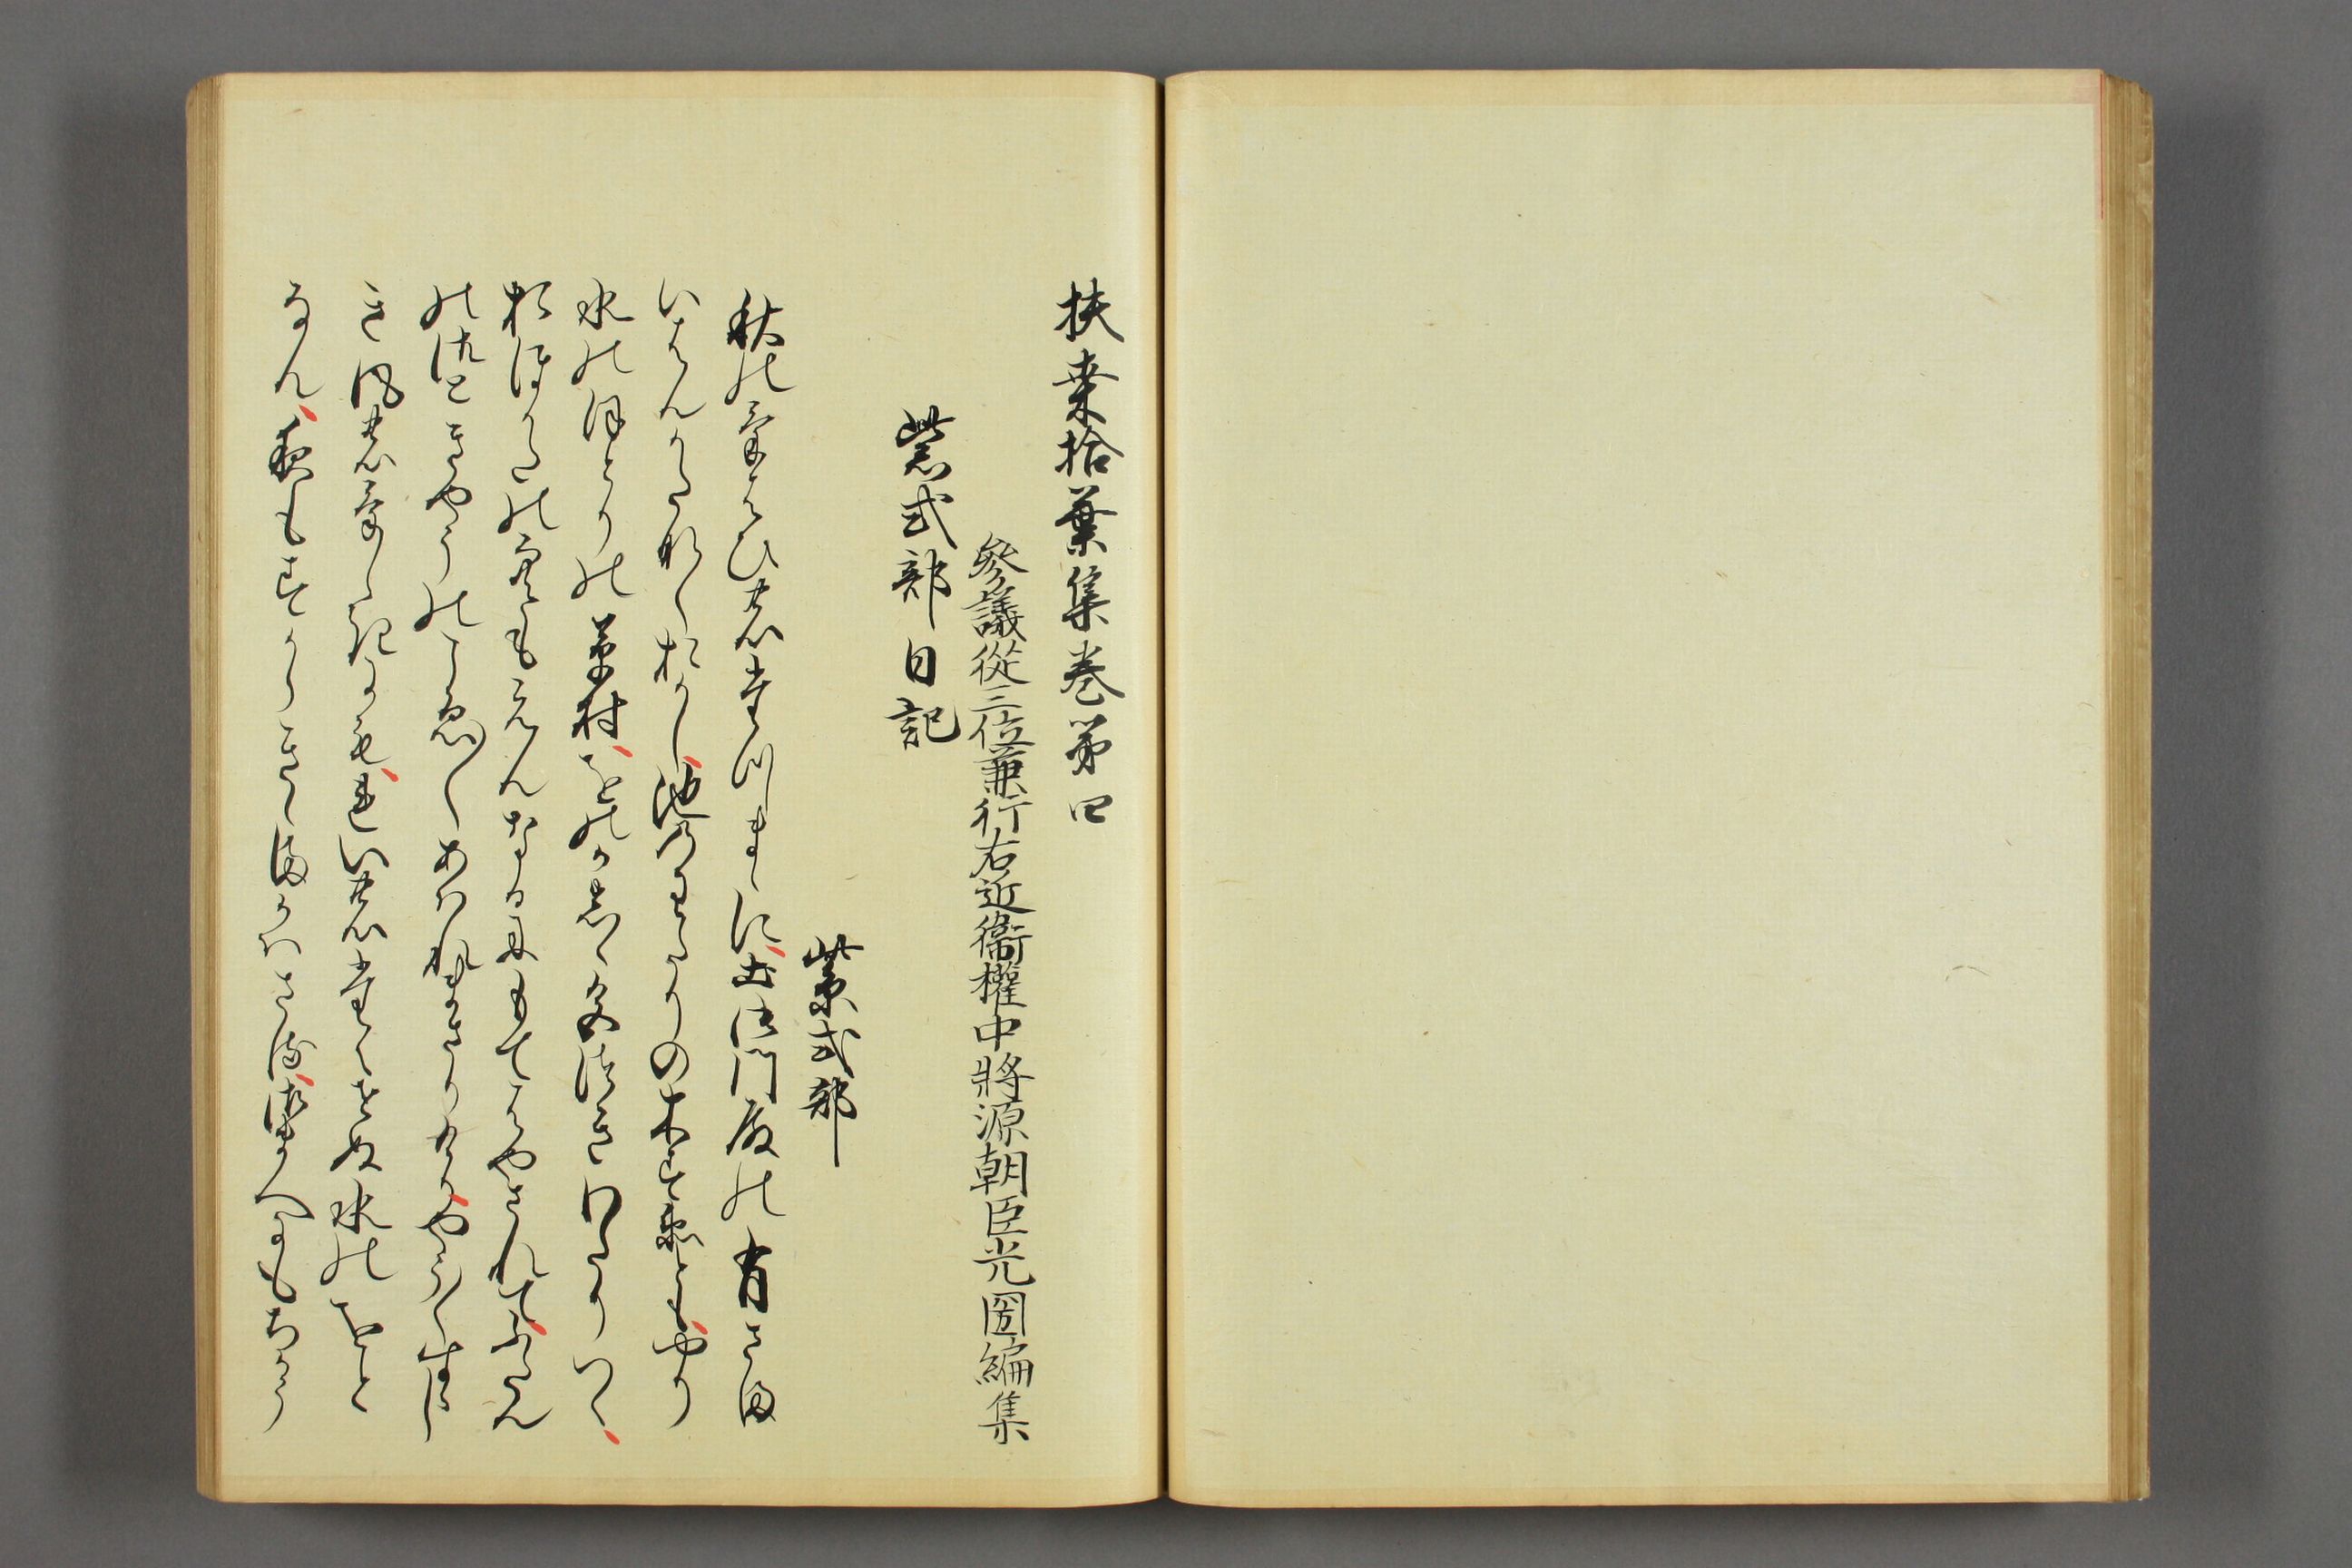 扶桒拾葉集巻第四
參議從三位兼行右近衞權中將源朝臣光圀編集
紫式部日記
紫式部
秋のけはひのたつまゝに土御門殿の有さま
いはんかたなくおかし池のわたりの木すゑともやり
水のほとりの草村をのかしゝ色つきわたりつゝ
おほかたの空もえんなるにもてはやされてふたん
の御と経やうのこゑ〳〵あはれまさりけりやう〳〵すゝし
き風のけしきにもれいのたえせぬ水のをと
なん夜もすからきゝまかはさる御まへにもちかう